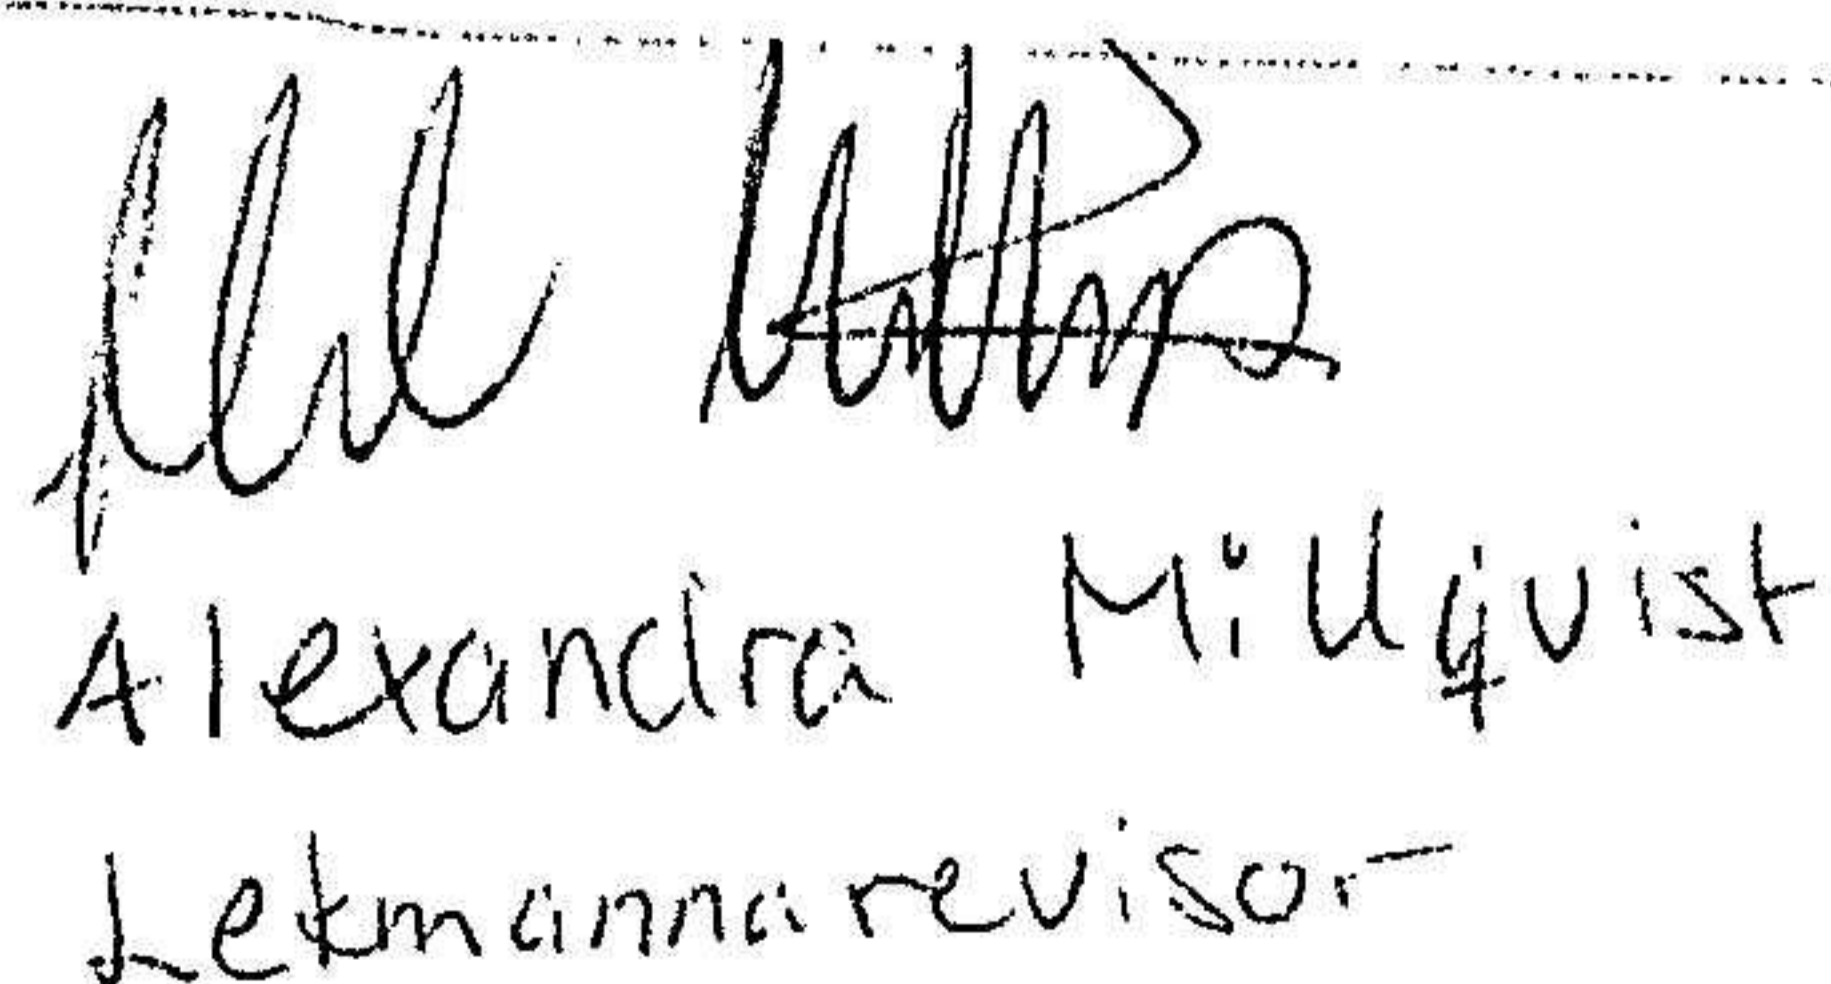 Alexandra Millqvist
Lekmannarevisor